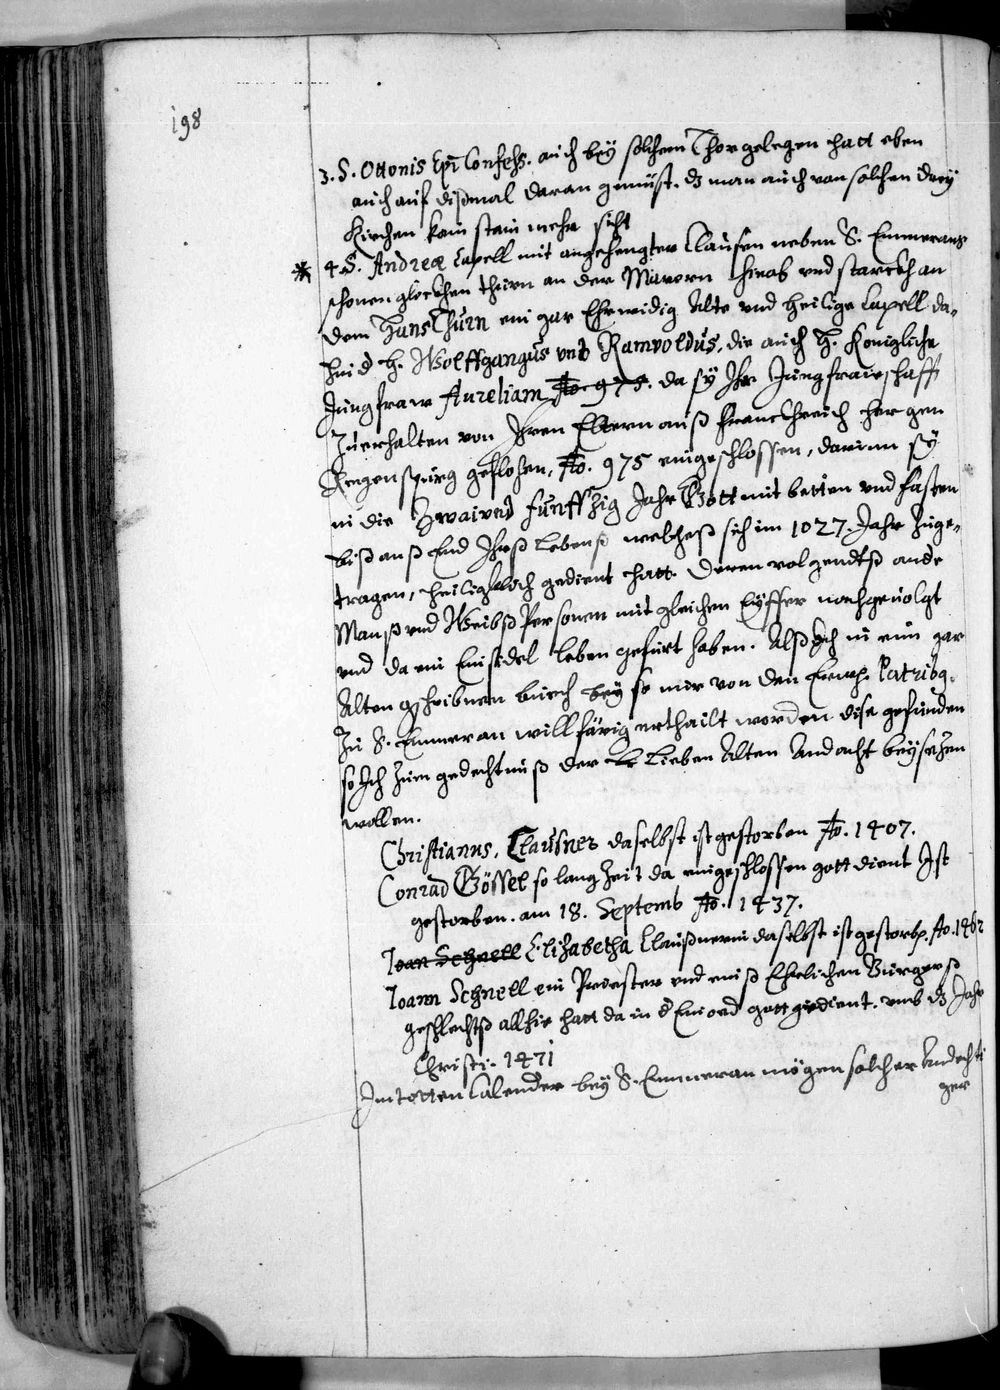 198
3. S. Ottonis Epi Confess. auch bey solchem Thor gelegen hatt eben
auch auf dißmal daran gemüst. dz man auch von solchen drey
Kirchen kain stain mehr sicht
* 4. S. Andreæ Capell mit angehengter Clausen neben S. Emmerans
schonen glockhen thurn an der Maurn herab und starckh an
dem HansThurn ein gar Ehrwidig Alte und heilige Capell da-
hin d H. Wolffgangus und Ramvoldus, die auch H. Konigliche
Jungfraw Aureliam Ao. 975. da sy Ihr Jungfrawschafft
Zuerhalten von Ihren Eltern auß Franckhreich her gen
Regenspurg geflohen, Ao. 975 eingeschlossen, darinn sy
in die Zwaiund funfftzig Jahr Gott mit betten und fasten
biß anß End Ihrß Lebenß welcheß sich im 1027. Jahr Zuge-
tragen, heiligklich gedient hatt. Deren volgendtß ande
Manß und Weibß Personen mit gleichen Eyffer nachgevolgt
und da ein Einsidel leben gefürt haben. Alß Ich in eim gar
Alten gschribnen buech bey so mir von den Erwr. Patribq.
Zu S. Emmeran willfärig erthailt worden dise gefunden
so Ich Zum gedechtnuß der Lieben Alten Andacht beysezen
wollen.
Christianus, Clausner daselbst ist gestorben Ao. 1407.
Conrad Gössel so lang Zeit da eingeschlossen gott dient Ist
gestorben. am 18. Septemb Ao. 1437.
Ioan Schnell Elizabetha Claußnerin daselbst ist gestorb. Ao. 1462
Ioann Schnell ein Priester und einß Ehrlichen Burgerß
geschlechtß allhie hatt da in d Einöed gott gedient. umb dz Jahr
Christi. 1471
Im totten Calender bey S. Emmeran mögen solcher Andechti
ger